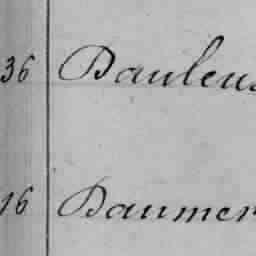 36 Dauleus
16 Daumer